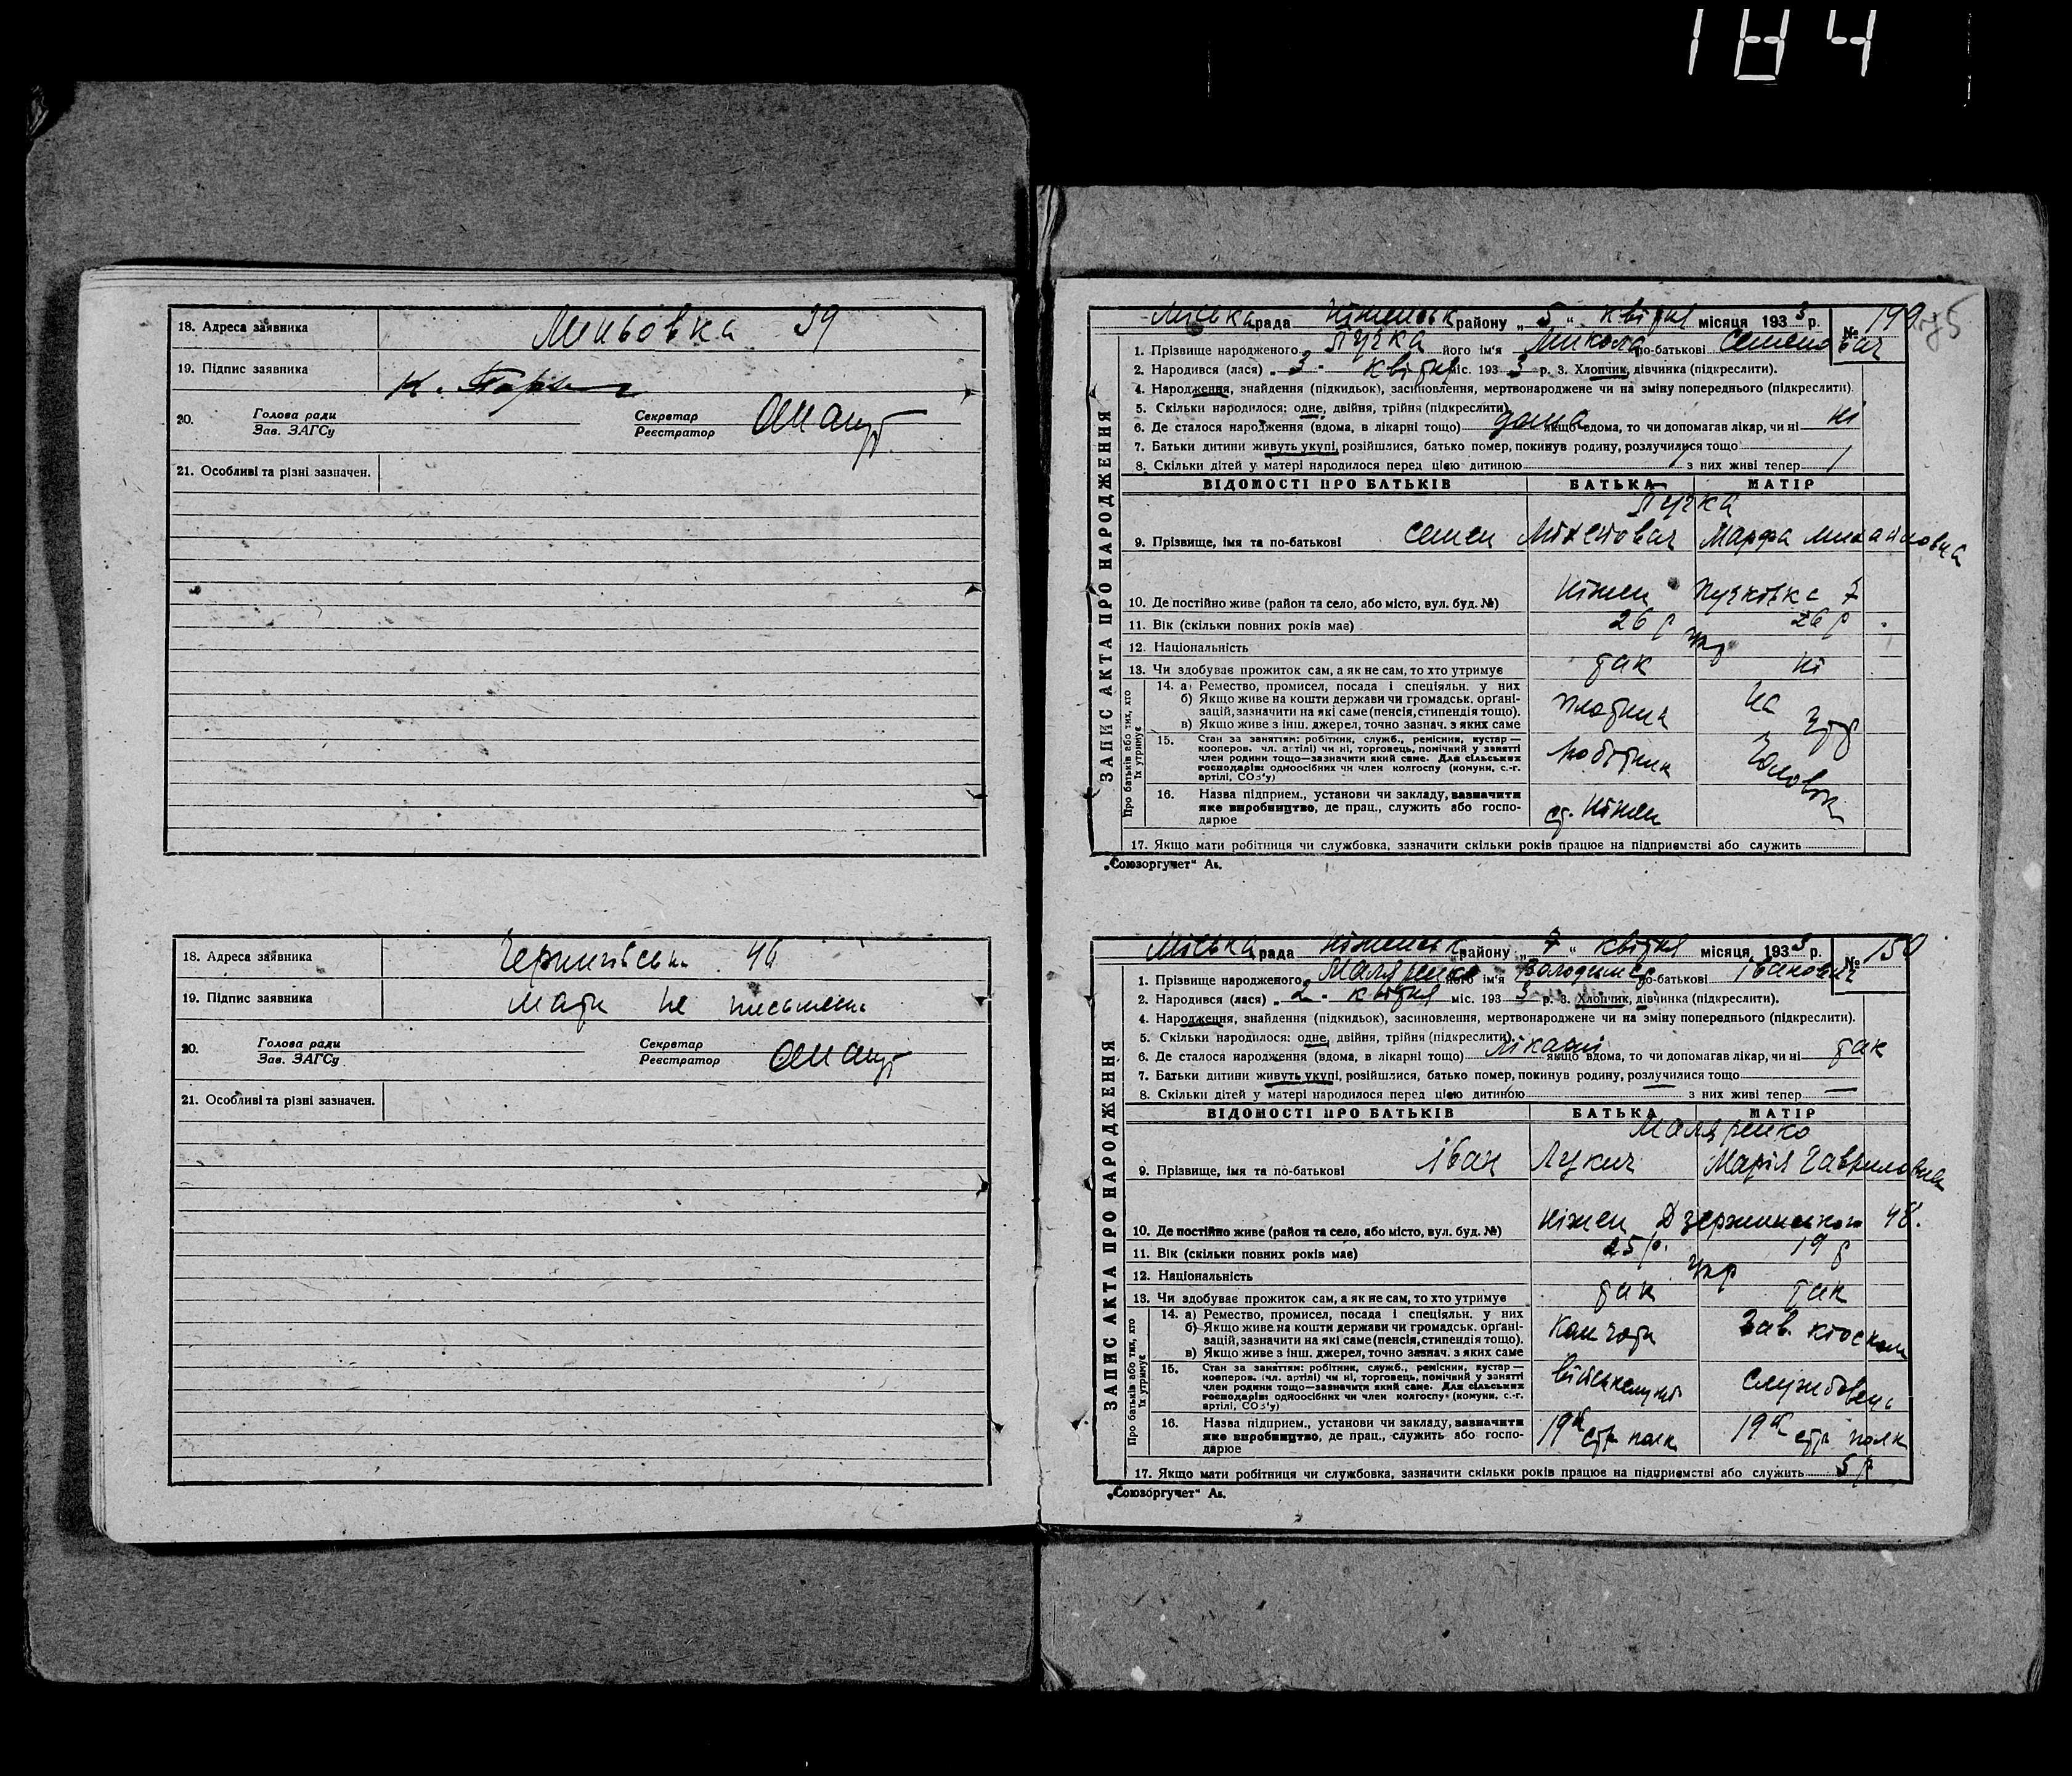 184
18. Адреса заявника Миньовка 39
19. Підпис заявника К.
20. Голова ради Зав. ЗАГСу Секретар Реєстратор
21. Особливі та різні зазначен.
18. Адреса заявника 46
19. Підпис заявника мати не письменна
20. Голова ради Зав. ЗАГСу Секретар Реєстратор
21. Особливі та різні зазначен.
ЗАПИС АКТА ПРО НАРОДЖЕННЯ
Міська рада Ніженськ району „5“ квітня місяця 1933 р. № 149
1. Прізвище народженого Пучка його ім'я Микола по-батькові Семенович
2. Народився (лася) „3“ квітня міс. 1933 р. 3. Хлопчик, дівчинка (підкреслити).
4. Народження, знайдення (підкидьок), засиновлення, мертвонароджене чи на зміну попереднього (підкреслити)
5. Скільки народилося: одне, двійня, трійня (підкреслити)
6. Де сталося народження (вдома, в лікарні тощо) дома якщо вдома, то чи допомагав лікар, чи ні ні
7. Батьки дитини живуть укупі, розійшлися, батько помер, покинув родину, розлучилися тощо
8. Скільки дітей у матері народилося перед цією дитиною / з них живі тепер /
ВІДОМОСТІ ПРО БАТЬКІВ БАТЬКА МАТІР
Пучка
9. Прізвище, імя та по-батькові Семен Марфа Михайловна
10. Де постійно живе (район та село, або місто, вул. буд. №) Ніжен Пучківка 7
11. Вік (скільки повних років має) 26 р 26 р
12. Національність Укр
13. Чи здобуває прожиток сам, а як не сам, то хто утримує так ні
Про батьків або тих, хто їх утримує
14. а) Ремество, промисел, посада і спеціяльн. у них
б) Якщо живе на кошти держави чи громадськ. органі-
зацій, зазначити на які саме (пенсія, стипендія тощо).
в) Якщо живе з інш. джерел, точно зазнач. з яких саме
плотник на утр
15. Стан за заняттям: робітник, служб., ремісник, кустар —
кооперов. чл. артілі) чи ні, торговець, помічний у занятті
член родини тощо—зазначити який саме. Для сільських
господарів: одноосібних чи член колгоспу (комуни, с.-г.
артілі, СОЗ'у)
робітник
16. Назва підприєм., установи чи закладу, зазначити
яке виробництво, де прац., служить або госпо-
дарює
ст. Ніжен
17. Якщо мати робітниця чи службовка, зазначити скільки років працює на підприємстві або служить
„Союзоргучет“ А₅.
ЗАПИС АКТА ПРО НАРОДЖЕННЯ
Міська рада Ніженськ району „7“ квітня місяця 1933 р. № 150
1. Прізвище народженого Маляренко його ім'я Володимер по-батькові Іванович
2. Народився (лася) „2“ квітня міс. 1933 р. 3. Хлопчик, дівчинка (підкреслити).
4. Народження, знайдення (підкидьок), засиновлення, мертвонароджене чи на зміну попереднього (підкреслити).
5. Скільки народилося: одне, двійня, трійня (підкреслити)
6. Де сталося народження (вдома, в лікарні тощо) лікарні якщо вдома, то чи допомагав лікар, чи ні так
7. Батьки дитини живуть укупі, розійшлися, батько помер, покинув родину, розлучилися тощо
8. Скільки дітей у матері народилося перед цією дитиною — з них живі тепер —
ВІДОМОСТІ ПРО БАТЬКІВ БАТЬКА МАТІР
Маляренко
9. Прізвище, імя та по-батькові Іван Лукич Марія Гавриловна
10. Де постійно живе (район та село, або місто, вул. буд. №) Ніжен Дзержинського 48.
11. Вік (скільки повних років має) 25 р. 19 р
12. Національність Укр
13. Чи здобуває прожиток сам, а як не сам, то хто утримує так так
Про батьків або тих, хто їх утримує
14. а) Ремество, промисел, посада і спеціяльн. у них
б) Якщо живе на кошти держави чи громадськ. органі-
зацій, зазначити на які саме (пенсія, стипендія тощо).
в) Якщо живе з інш. джерел, точно зазнач. з яких саме
Зав. кіоском
15. Стан за заняттям: робітник, служб., ремісник, кустар —
кооперов. (чл. артілі) чи ні, торговець, помічний у занятті
член родини тощо—зазначити який саме. Для сільських
господарів: одноосібних чи член колгоспу (комуни, с.-г.
артілі, СОЗ'у)
військслужб службовець
16. Назва підприєм., установи чи закладу, зазначити
яке виробництво, де прац., служить або госпо-
дарює
19й стр полк 19й стр полк
17. Якщо мати робітниця чи службовка, зазначити скільки років працює на підприємстві або служить 5 р
„Союзоргучет“ А₅.